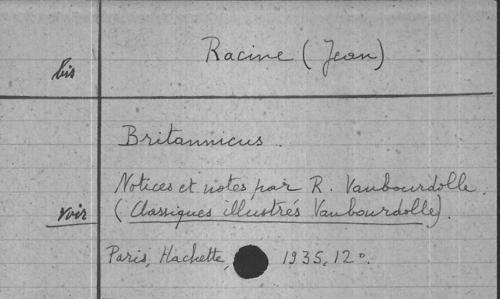 Racine (Jean)
bis
Britannicus.
Notices et notes par R. Vaubourdolle.
voir (Classiques illustrés Vaubourdolle).
Paris, Hachette, 1935, 12º.